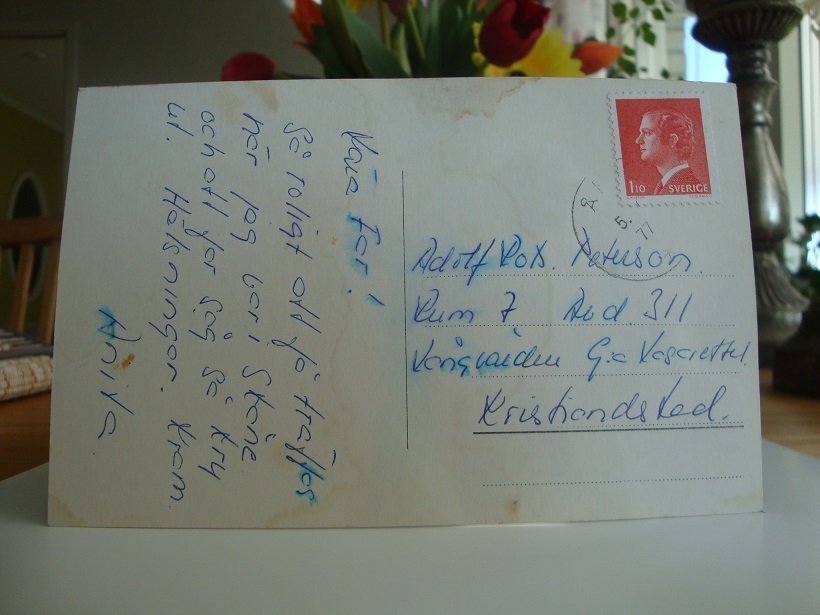 Kära Far!
Så roligt att få träffas
när jag var i Skåne
och att far såg så kry
ut. Hälsningar. Kram
Anita.
1 10 SVERIGE
5. 77
Adolf Peterson.
Rum 7, Avd. 311
Långvården G:a Lasarettet.
Kristiandstad.